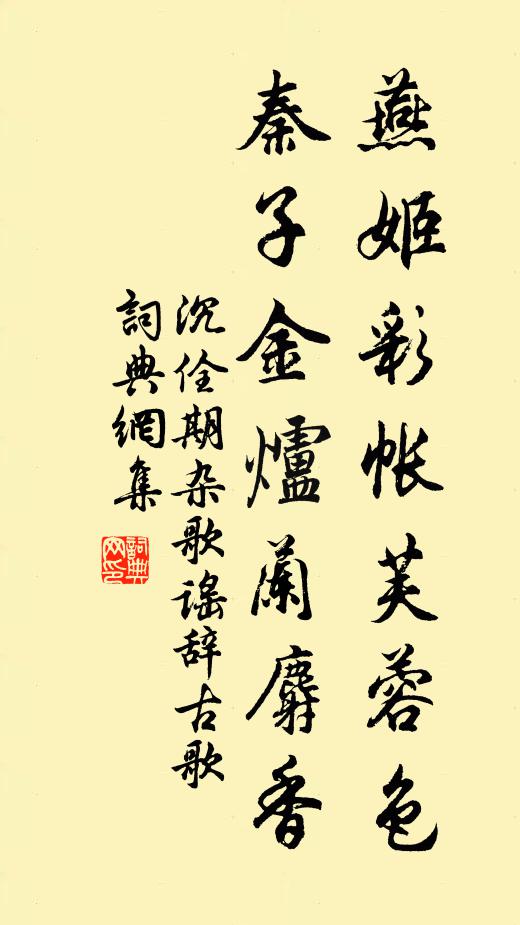 燕姬彩帐芙蓉色
秦子金爐蘭麝香
沉佺期杂歌谣辞古歌
詞典網集
詞典
网印